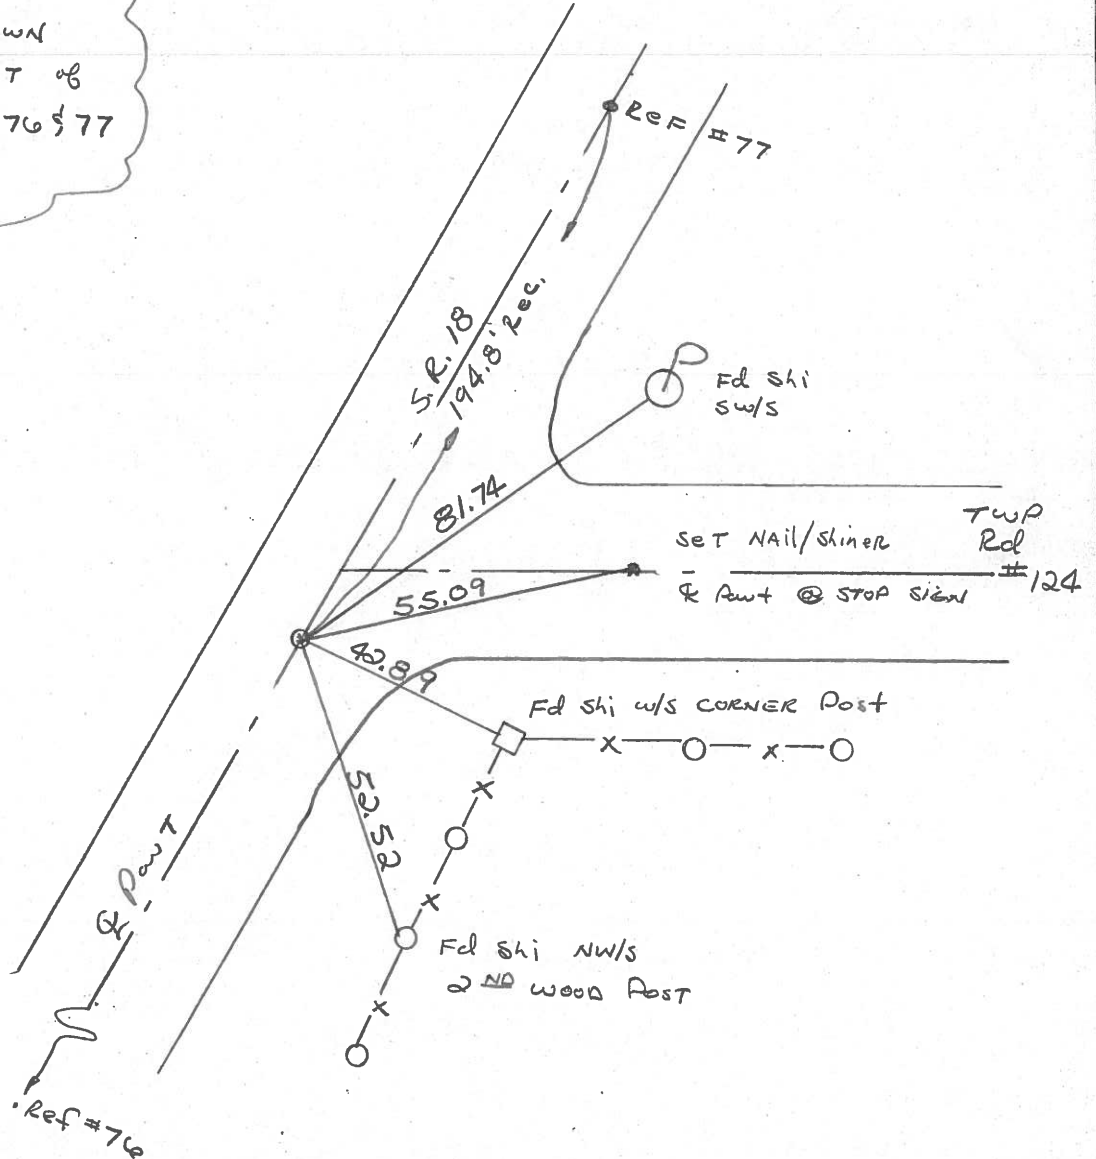 WN
T of
76 & 77
Ref #77
S.R. 18
194.8' Rec.
Fd Shi
SW/S
81.74
TWP
Rd
#124
Set Nail/Shiner
℄ Pavt @ STOP SIGN
55.09
42.89
Fd Shi w/s CORNER Post
52.52
℄ PavT
Fd Shi NW/S
2ND WOOD POST
Ref #76